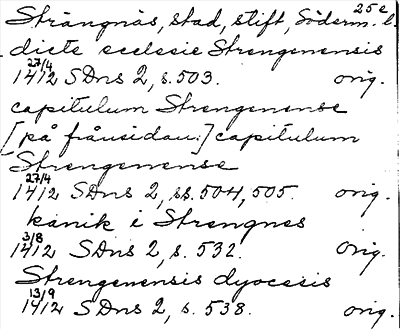 25e
Strängnäs, stad, stift, Söderm. l.
dicte ecclesie Strengenensis
27/4
1412 SDns 2, s. 503. orig.
capitulum Strengenense
[på frånsidan:] capitulum
Strengenense
27/4
1412 SDns 2, ss. 504, 505. orig.
kanik i Strengnes
3/8
1412 SDns 2, s. 532. orig.
Strengenensis dyocesis
13/9
1412 SDns 2, s. 538. orig.